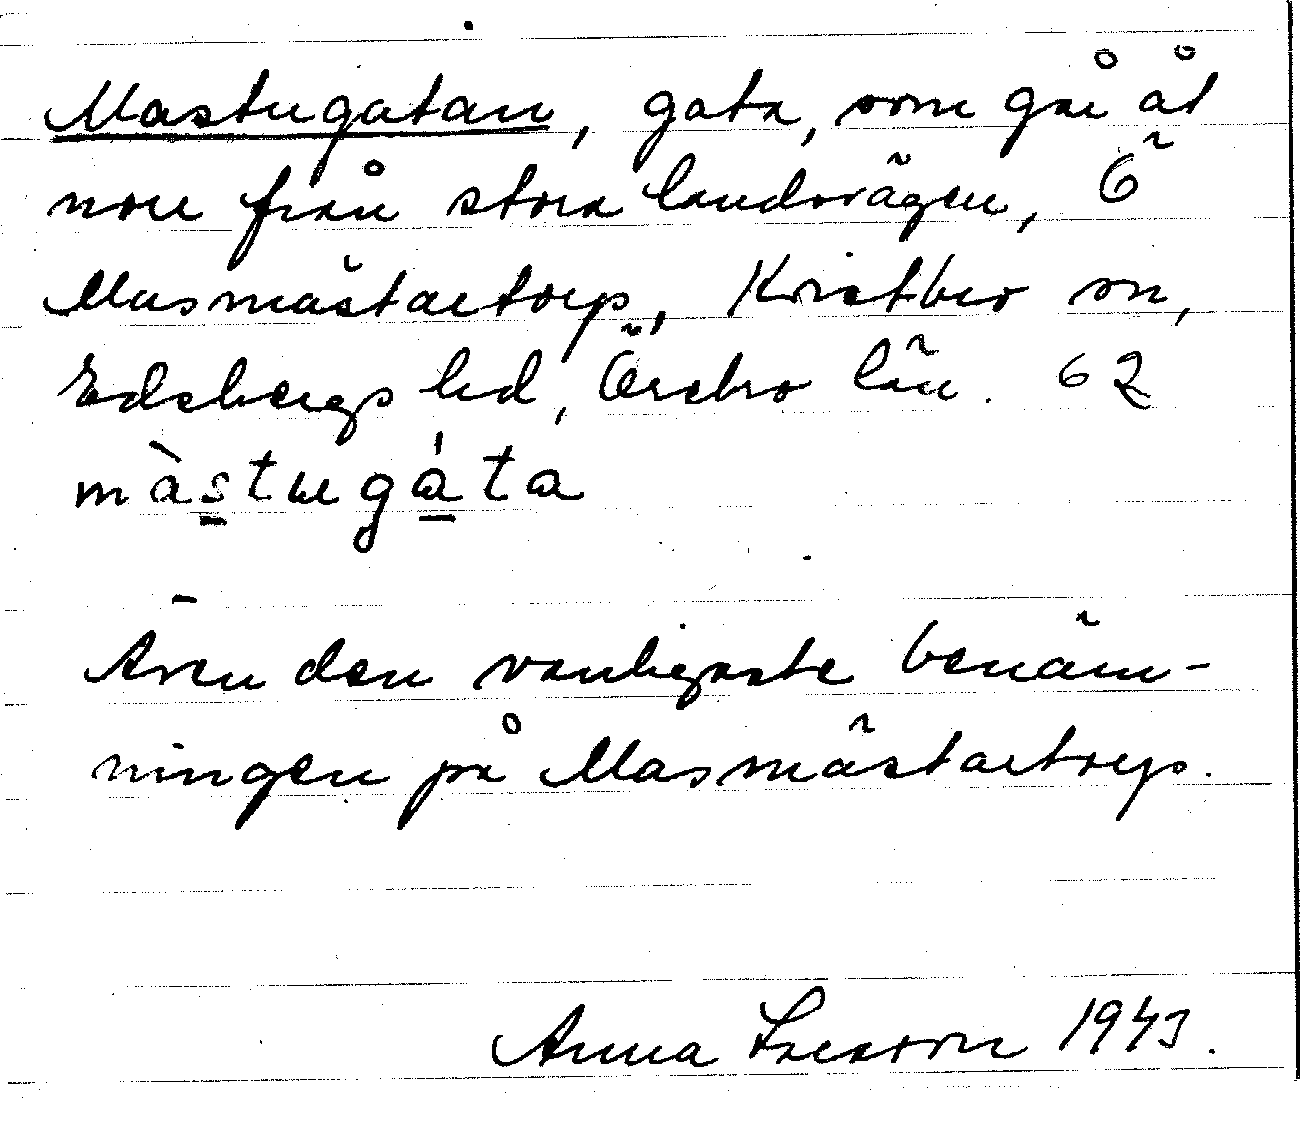 Mastugatan, gata, som går åt
norr från stora landsvägen, Ö
Masmästartorp, Kvistbro sn,
Edsbergs hd, Örebro län. 62
màstugáta
Även den vanligaste benäm-
ningen på Masmästartorp.
Anna Larsson 1943.